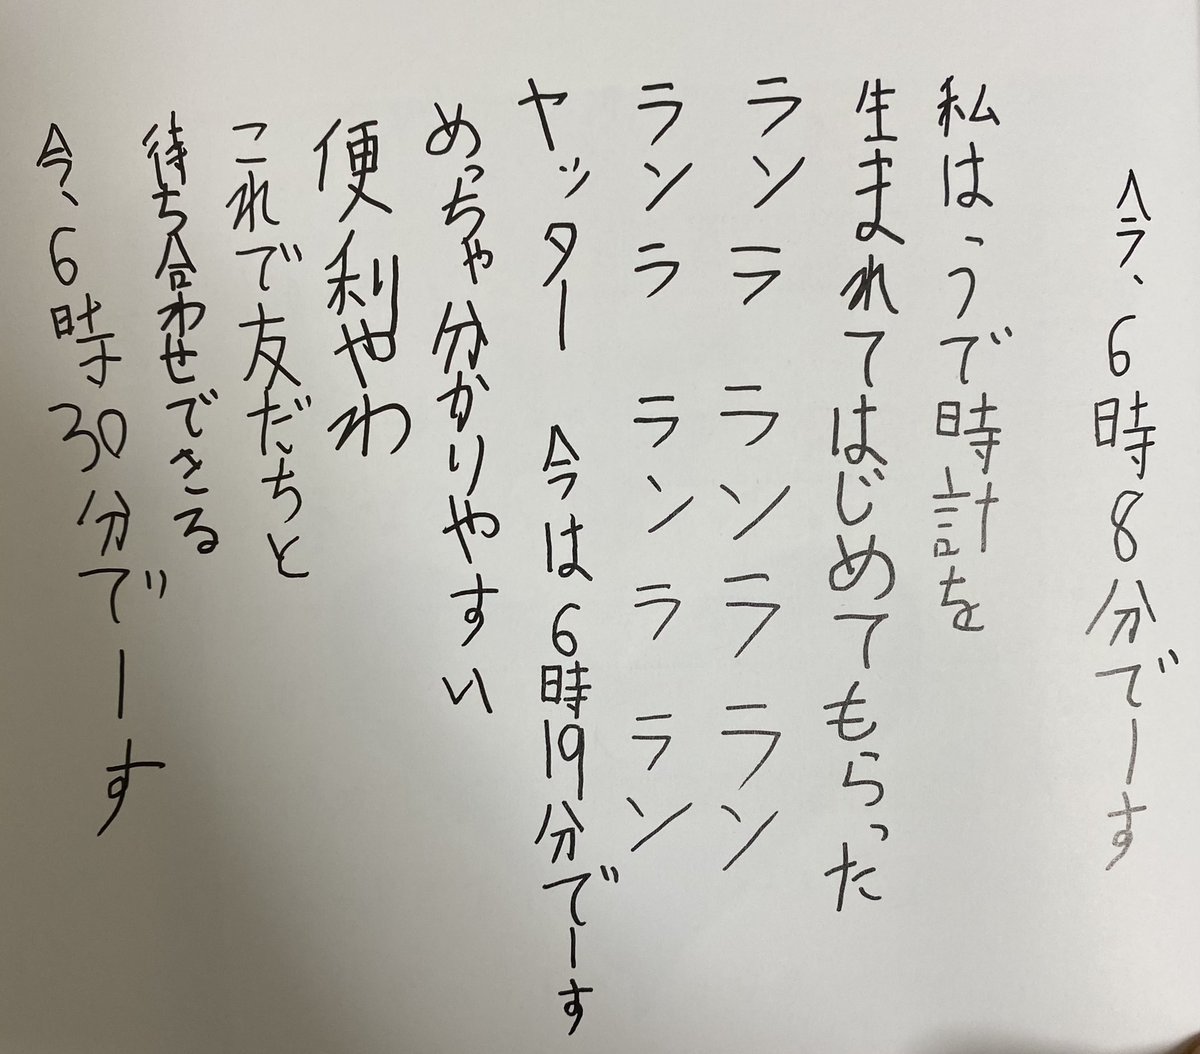 今、6時8分でーす
私はうで時計を
生まれてはじめてもらった
ランラ ランララン
ランラ ランララン
ヤッター 今は6時19分でーす
めっちゃ分かりやすい
便利やわ
これで友だちと
待ち合わせできる
今、6時30分でーす